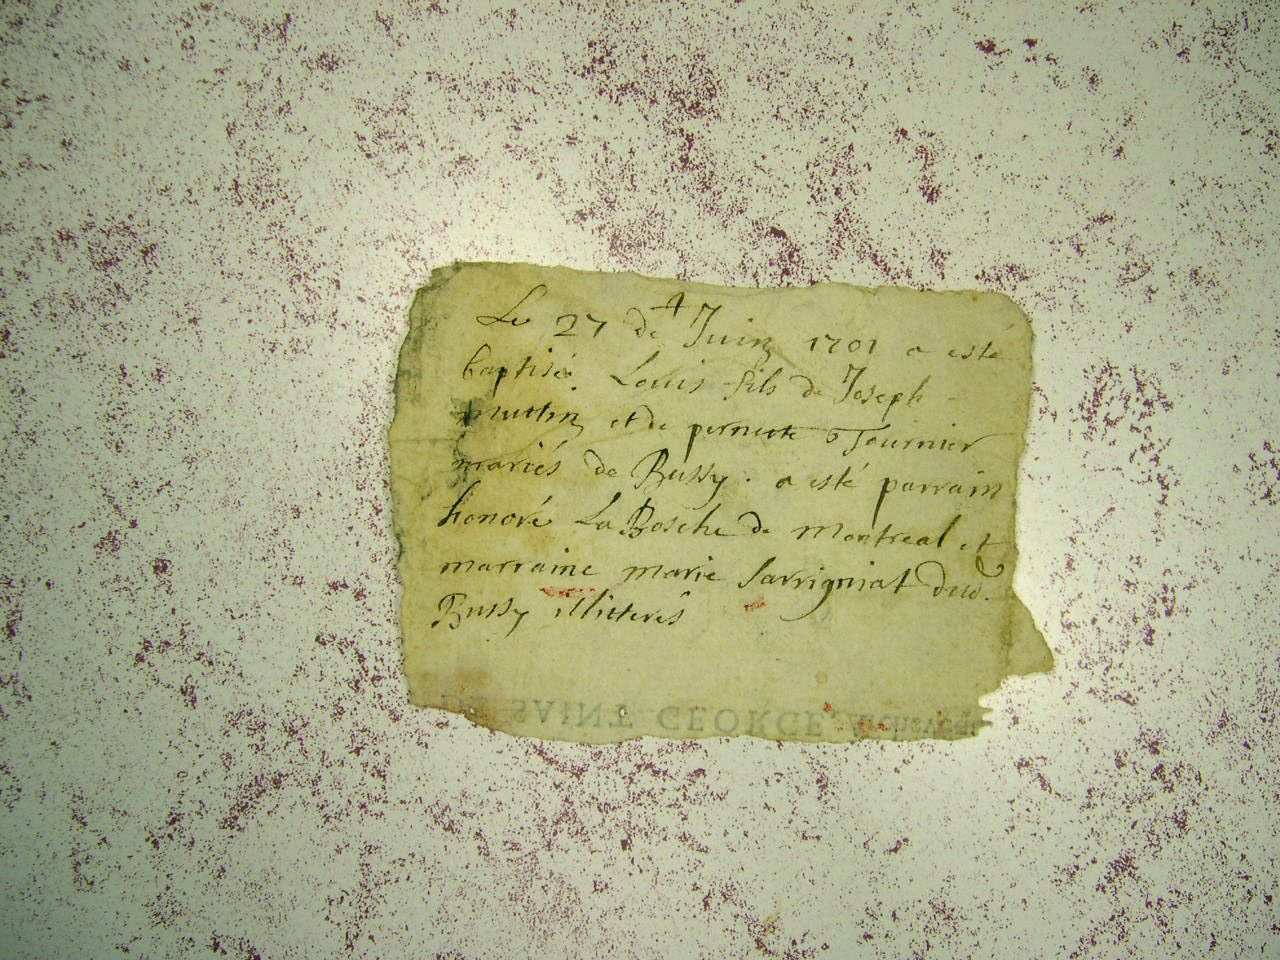 Le 27 de Juin 1701 a esté
baptisé. Louis fils de Joseph
et de pernette Tournier
mariés de Bussy. a esté parrain
honoré La Bosche de Montreal et
marraine marie Sarrigniat dud.
Bussy illiterés
DE SAINT GEORGE,